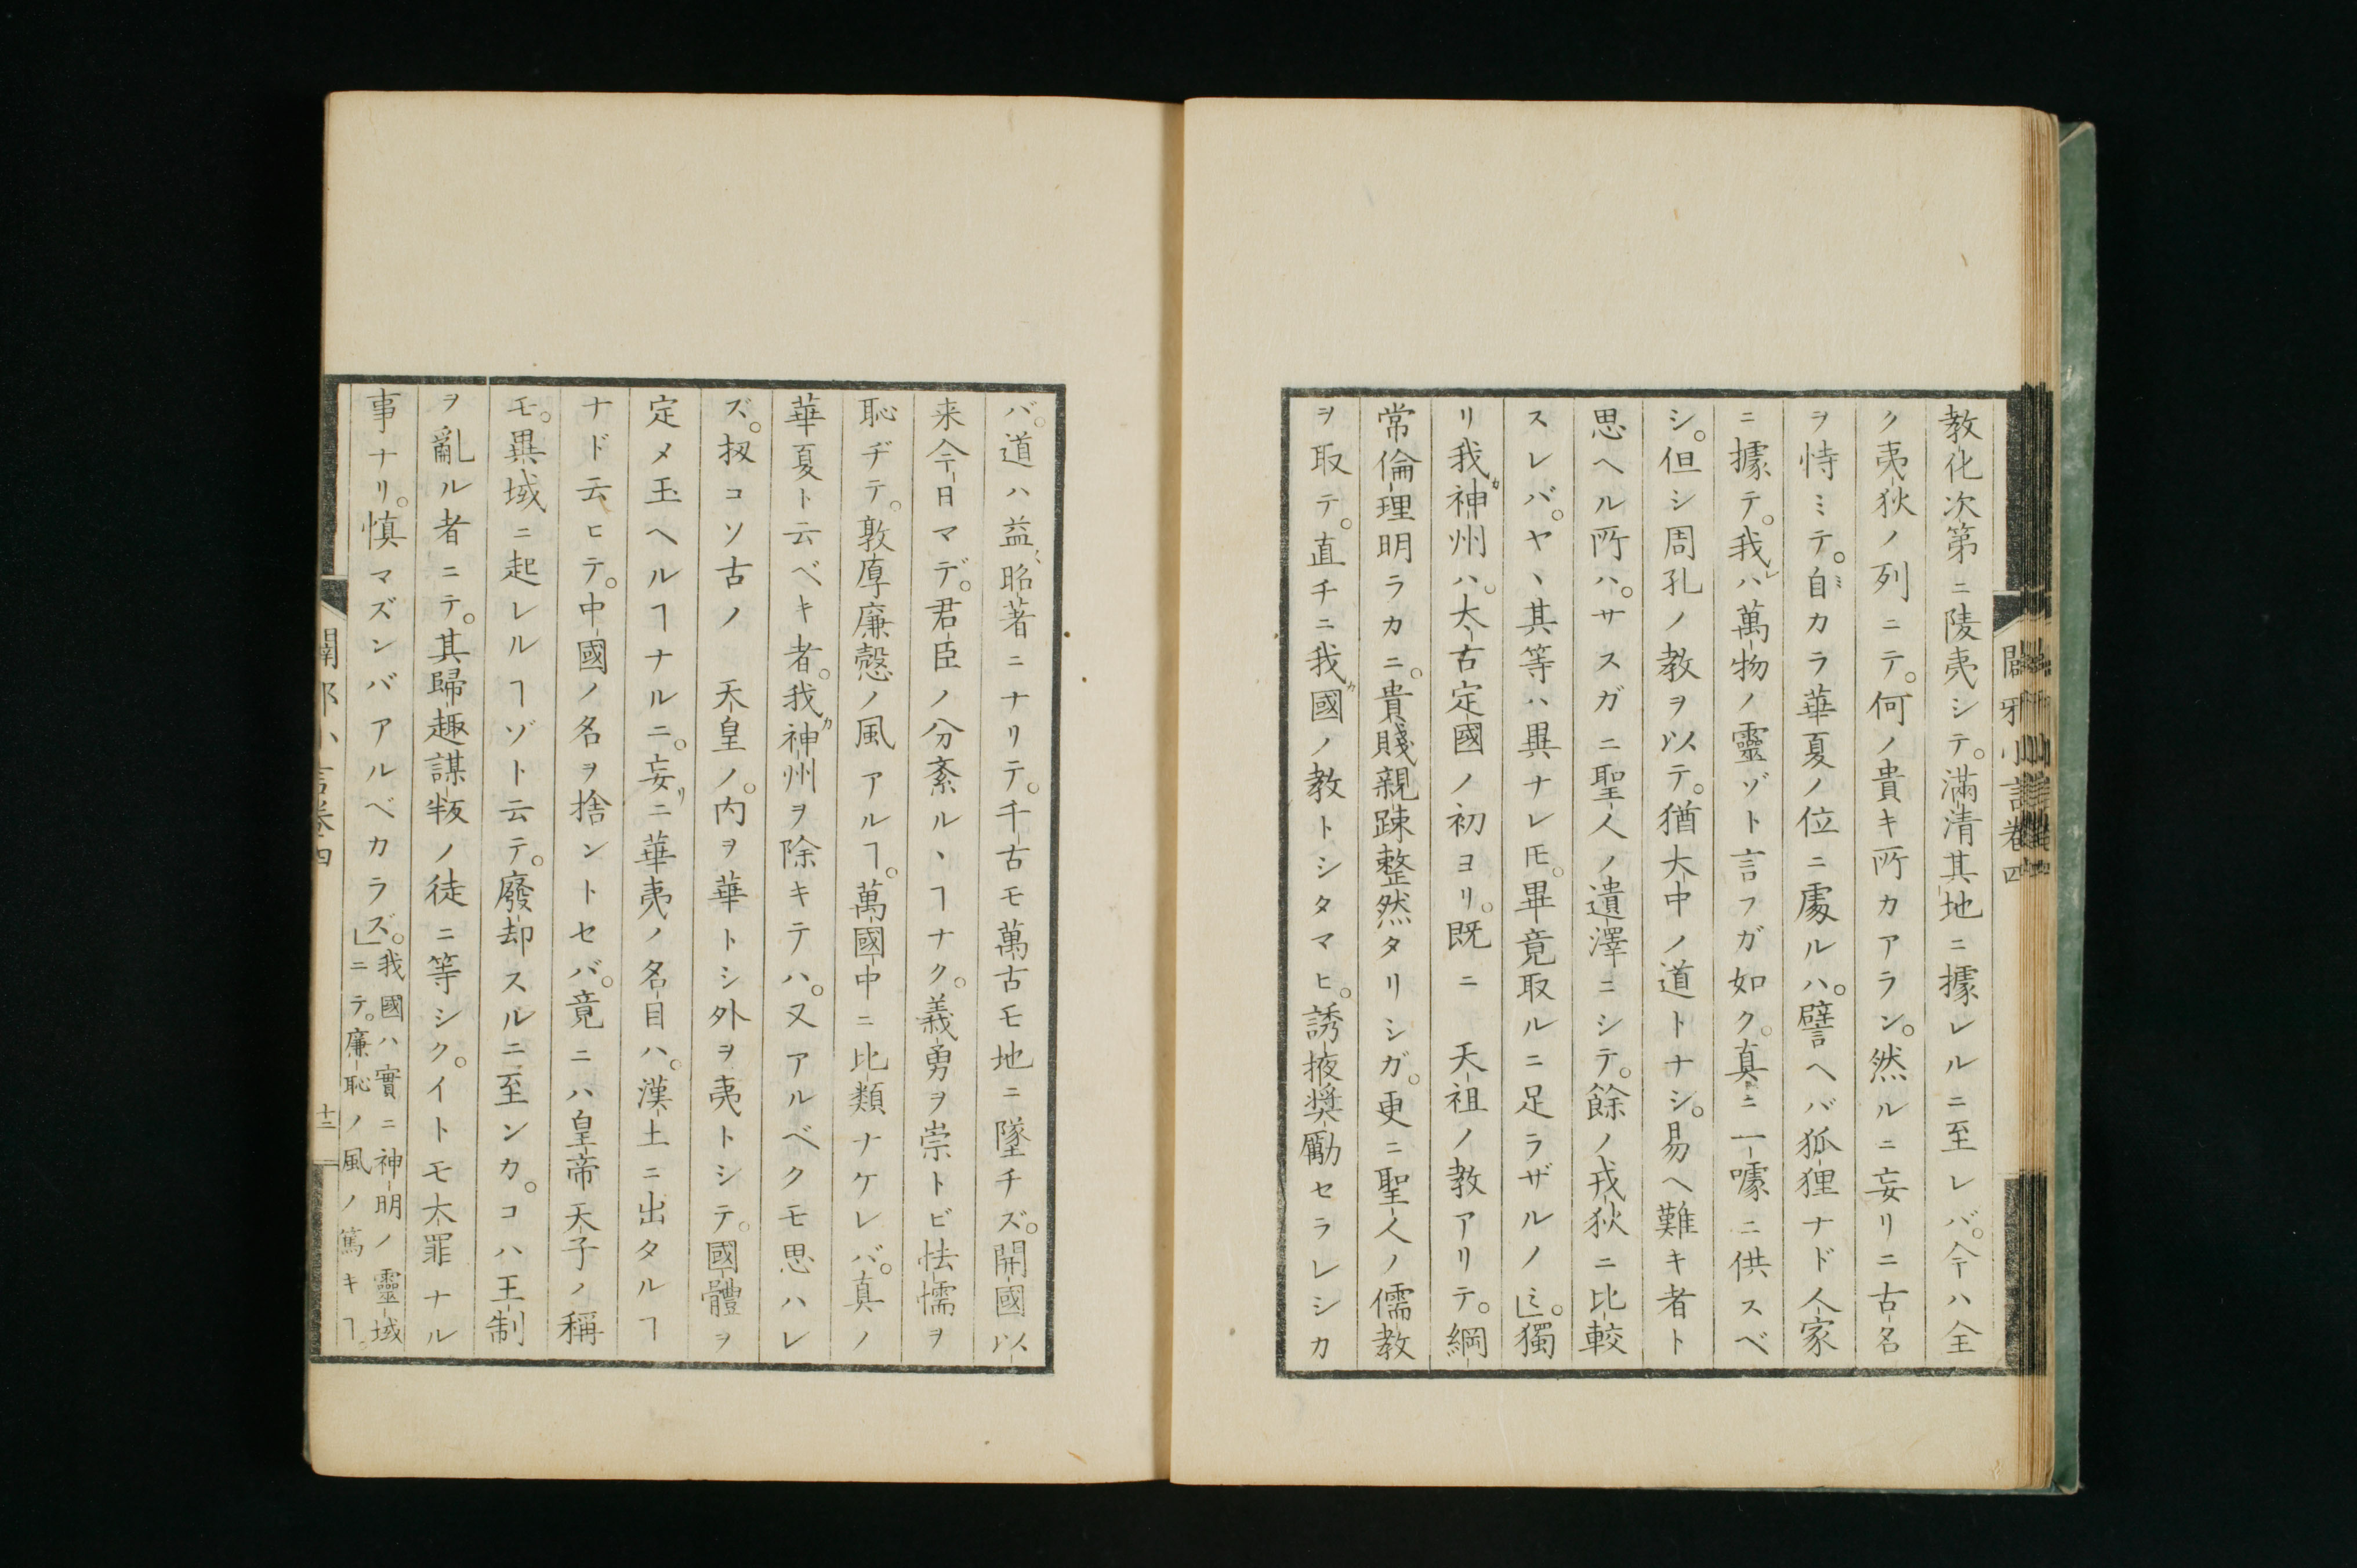 教化次第ニ陵夷シテ。滿清其地ニ據レルニ至レバ。今ハ全
ク夷狄ノ列ニテ。何ノ貴キ所カアラン。然ルニ妄リニ古名
ヲ恃ミテ。自ミカラ華夏ノ位ニ處ルハ。譬ヘバ狐狸ナド人家
ニ據テ。我レハ萬物ノ靈ゾト言フガ如ク。真ニ一噱ニ供スベ
シ。但シ周孔ノ教ヲ以テ。猶大中ノ道トナシ。易ヘ難キ者ト
思ヘル所ハ。サスガニ聖人ノ遺澤ニシテ。餘ノ戎狄ニ比較
スレバ。ヤヽ其等ハ異ナレ𪜈。畢竟取ルニ足ラザルノミ」。獨
リ我カ神州ハ。太古定國ノ初ヨリ。既ニ　天祖ノ教アリテ。綱
常倫理明ラカニ。貴賤親疎整然タリシガ。更ニ聖人ノ儒教
ヲ取テ。直チニ我カ國ノ教トシタマヒ。誘掖奨勵セラレシカ
闢邪小言卷四
バ。道ハ益〻昭著ニナリテ。千古モ萬古モ地ニ墜チズ。開國以
来今日マデ。君臣ノ分紊ルヽヿナク。義勇ヲ崇トビ怯懦ヲ
恥ヂテ。敦厚廉愨ノ風アルヿ。萬國中ニ比類ナケレバ。真ノ
華夏ト云ベキ者。我カ神州ヲ除キテハ。又アルベクモ思ハレ
ズ。扨コソ古ノ　天皇ノ。内ヲ華トシ外ヲ夷トシテ。國體ヲ
定メ玉ヘルヿナルニ。妄リニ華夷ノ名目ハ。漢土ニ出タルヿ
ナド云ヒテ。中國ノ名ヲ捨ントセバ。竟ニハ皇帝天子ノ稱
モ。異域ニ起レルヿゾト云テ。廢却スルニ至ンカ。コハ王制
ヲ亂ル者ニテ。其歸趣謀叛ノ徒ニ等シク。イトモ大罪ナル
事ナリ。慎マズンバアルベカラズ。」我國ハ實ニ神明ノ靈域
ニテ。廉恥ノ風ノ篤キヿ。
闢邪小言卷四
十三